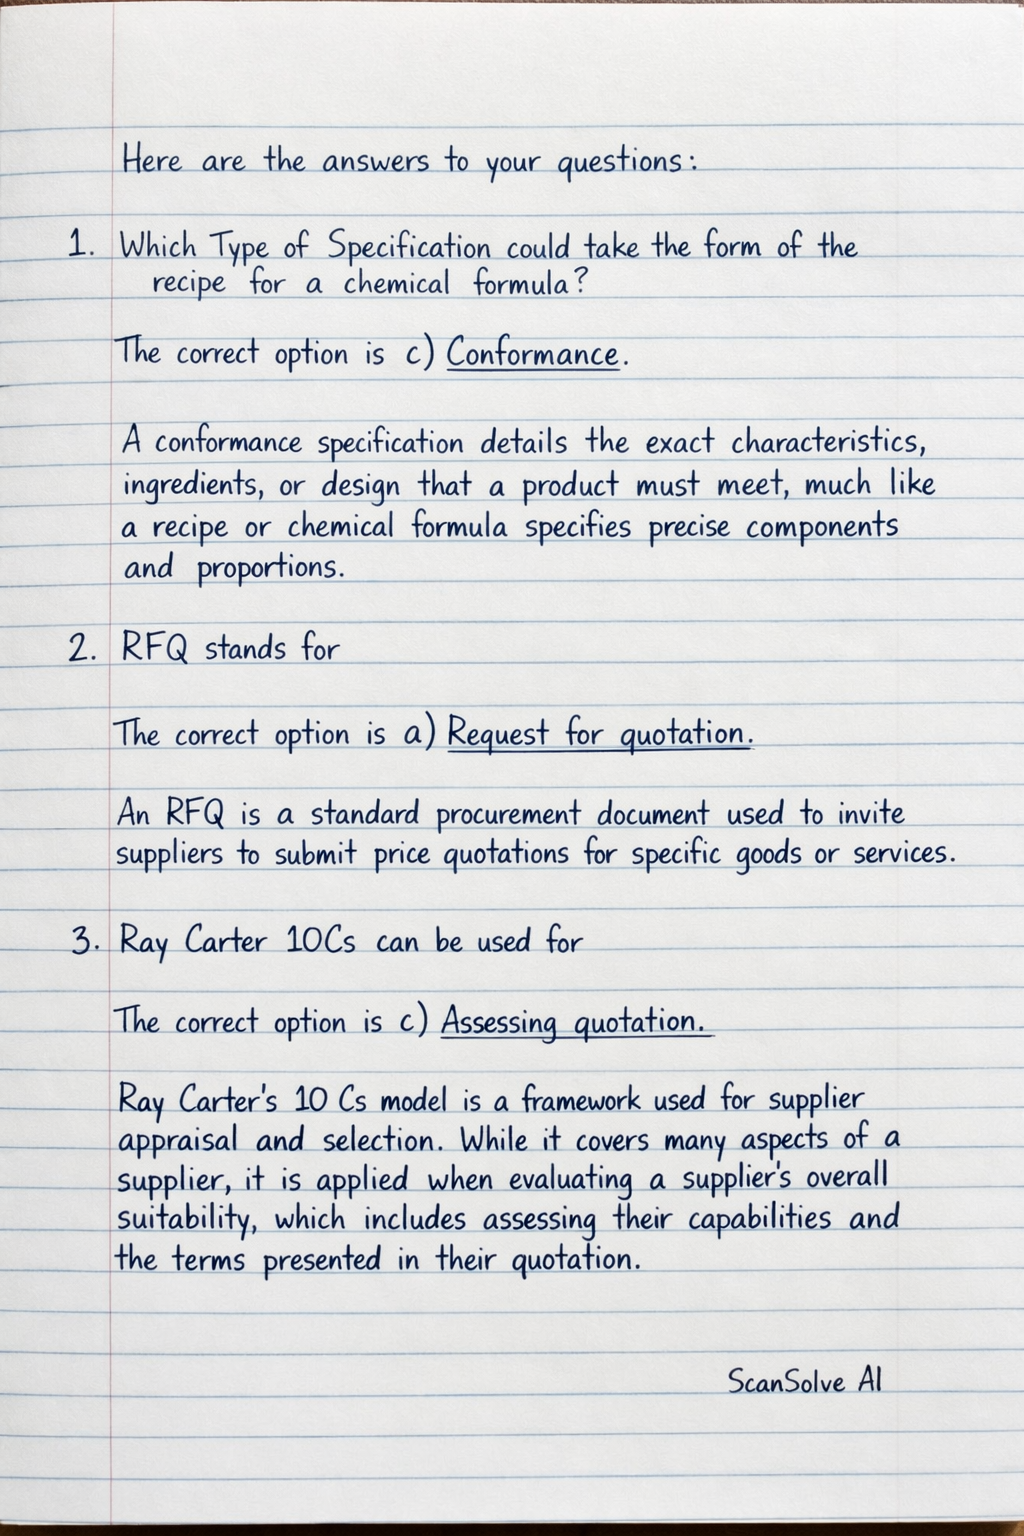 Here are the answers to your questions:
1. Which Type of Specification could take the form of the
recipe for a chemical formula?
The correct option is c) Conformance.
A conformance specification details the exact characteristics,
ingredients, or design that a product must meet, much like
a recipe or chemical formula specifies precise components
and proportions.
2. RFQ stands for
The correct option is a) Request for quotation.
An RFQ is a standard procurement document used to invite
suppliers to submit price quotations for specific goods or services.
3. Ray Carter 10Cs can be used for
The correct option is c) Assessing quotation.
Ray Carter's 10 Cs model is a framework used for supplier
appraisal and selection. While it covers many aspects of a
supplier, it is applied when evaluating a supplier's overall
suitability, which includes assessing their capabilities and
the terms presented in their quotation.
ScanSolve AI